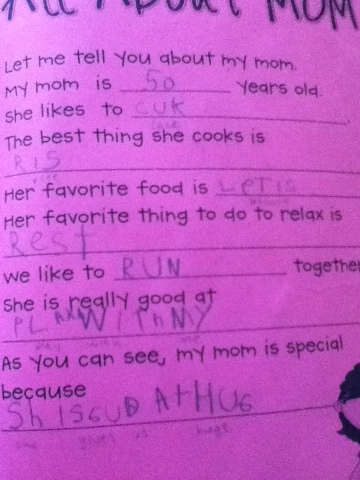 All About Mom
Let me tell you about my mom.
My mom is 50 years old.
She likes to cuk
The best thing she cooks is
RIS
Her favorite food is LETIS
Her favorite thing to do to relax is
Rest
we like to RUN together
She is really good at
As you can see, my mom is special
because